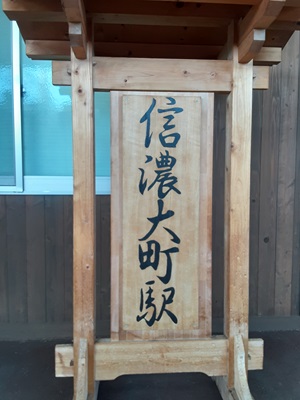 信濃大町駅